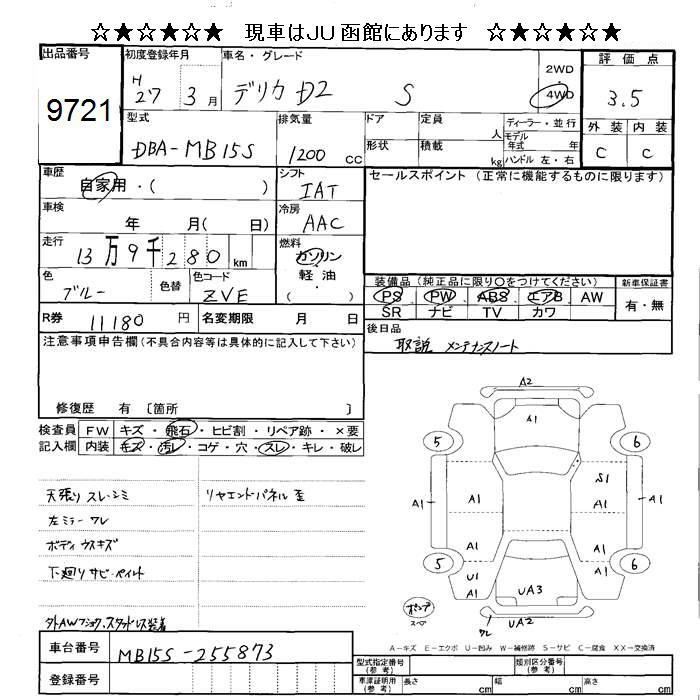 ☆★☆★☆★ 現車はJU函館にあります ☆★☆★☆★
出品番号 9721
初度登録年月 H 27 3月
車名・グレード デリカ D2 S
2WD 4WD
評価点 3.5
外装 内装
C C
型式 DBA-MB15S
排気量 1200 cc
ドア 形状
定員 人
積載 kg
ディーラー・並行
モデル年式 年式
ハンドル 左・右
車歴 自家用・( )
シフト IAT
セールスポイント(正常に機能するものに限ります)
車検 年 月( 日)
冷房 AAC
走行 13万9千280 km
燃料 ガソリン 軽油 ( )
色 ブルー 色替 色コード ZVE
装備品(純正品に限り〇をつけてください)
PS PW ABS エアB AW
SR ナビ TV カワ
新車保証書 有・無
R券 11180 円 名変期限 月 日
後日品 取説 メンテナンスノート
注意事項申告欄(不具合内容等は具体的に記入して下さい)
修復歴 有 〔箇所 〕
検査員記入欄
FW キズ・飛石・ヒビ割・リペア跡・×要
内装 キズ・汚レ・コゲ・穴・スレ・キレ・破レ
天張り スレ・シミ
リヤエンドパネル 歪
左ミラー ワレ
ボディ ウスキズ
下廻り サビ・ペイント
外AWフショク、スタッドレス装着
A2
A1
5 6
S1
A1 A1 A1 A1
A1 A1
5 U1 A1 6
UA3
ポンプ スペ
ワレ UA2
A-キズ E-エクボ U-凹み W-補修跡 S-サビ C-腐食 XX-交換済
車台番号 MB15S-255873
登録番号
型式指定番号(参考) 類別区分番号(参考)
車庫証明用(参考) 長さ cm 幅 cm 高さ cm